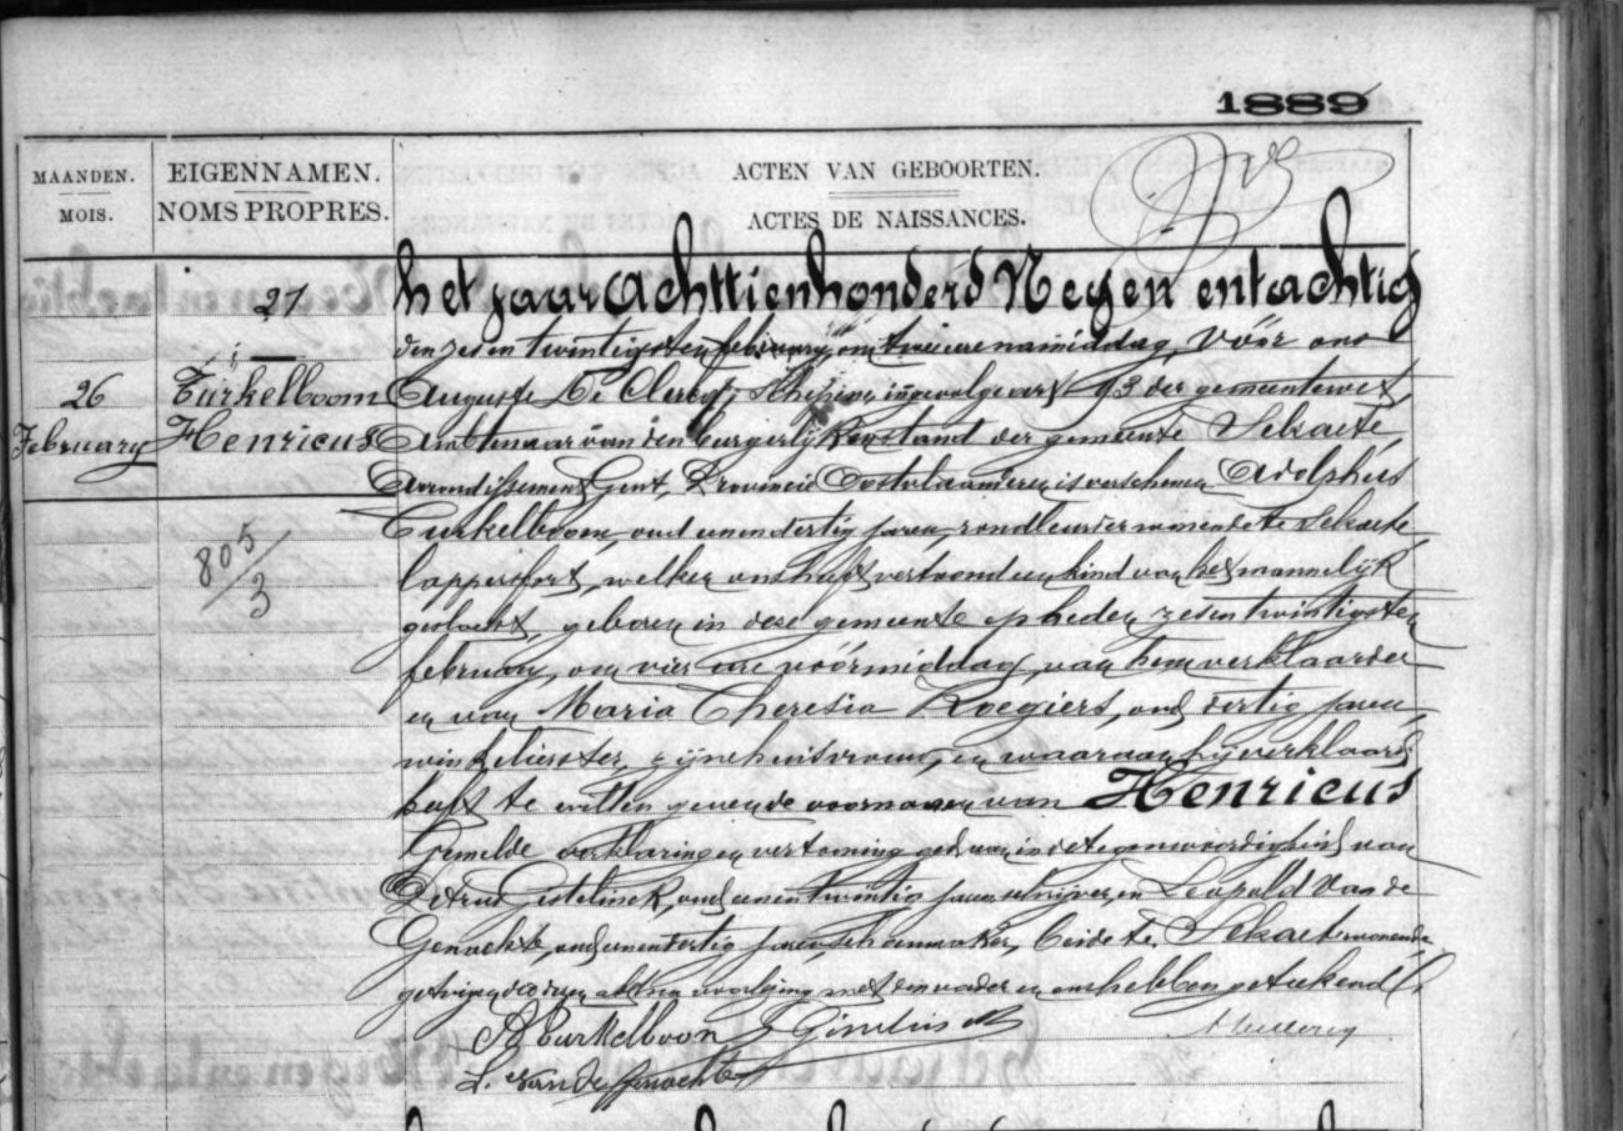 1889
MAANDEN.
MOIS.
EIGENNAMEN.
NOMS PROPRES.
ACTEN VAN GEBOORTEN.
ACTES DE NAISSANCES.
21
26
February
Turkelboom
Henricus
805/3
het jaar Achttienhonderd Negen entachtig
den zesen twintigsten february, om twee ure namiddag, vóór ons
Auguste De Clercq, Schepene, ingevolge art 93 der gemeentewet,
Ambtenaar van den burgerlijken stand der gemeente Selzaete,
Arrondissement Gent, Provincie Oostvlaanderen, is verschenen Adolphus
Turkelboom, oud eenendertig jaren, rondleurder wonende te Selzaete
, welken ons heeft vertoond een kind van het mannelijk
geslacht, geboren in deze gemeente op heden zesen twintigsten
february, om vier ure vóórmiddag, van hem verklaarder
en van Maria Theresia Roegiers, oud dertig jaren,
winkelierster, zijne huisvrouw, en waaraan hij verklaard
heeft te willen geven de voornaam van Henricus
Gemelde verklaring en vertooning gedaan in de tegenwoordigheid van
Petrus Gistelinck, oud eenen twintig jaren schrijver, en Leopold Van de
Genachte, oud eenendertig jaren, schoenmaker, beide te Selzaete wonende
getuigen, die dezen akt na voorlezing met den vader en ons hebben geteekend
A Turkelboom P Gistelinck A DeClercq
L. Van de Genachte